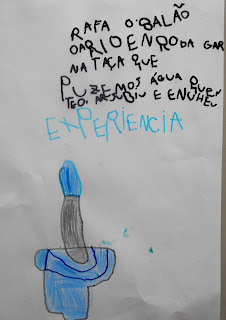 RAFA O BALÃO
OARIOENRODA GAR
NATAÇA QUE
PUZEMOS ÁGUA QUEN
TEO, SUBIU E ENUHEU
EXPERIENCIA